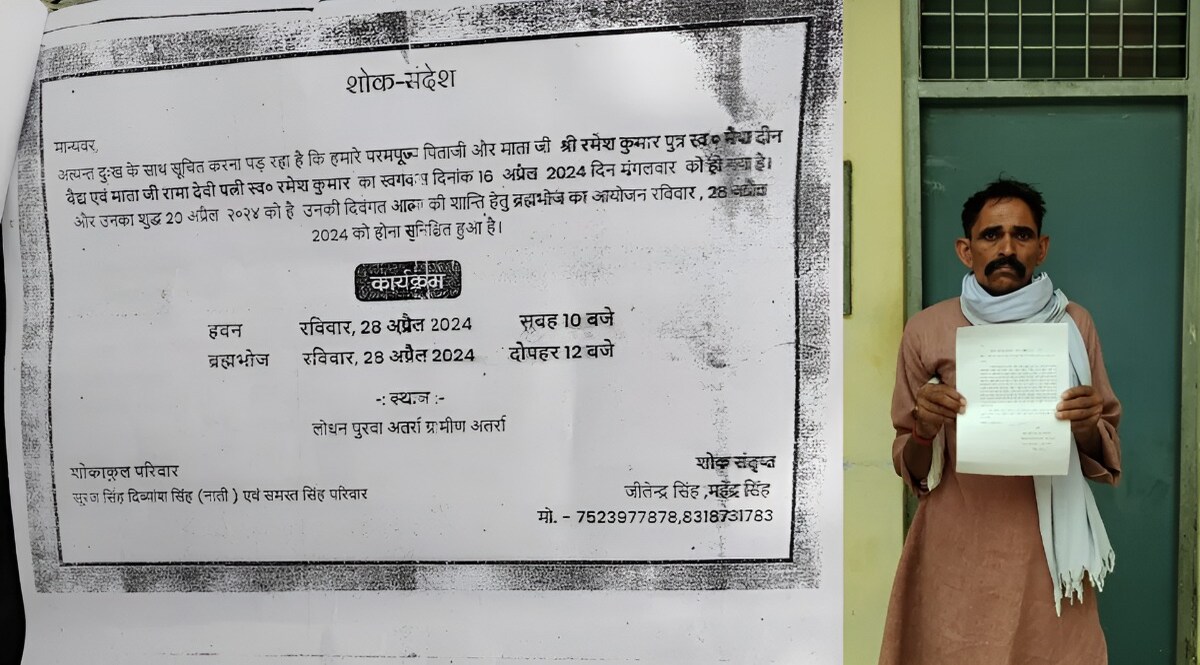 शोक-संदेश
मान्यवर,
अत्यन्त दुःख के साथ सूचित करना पड़ रहा है कि हमारे परमपूज्य पिताजी और माता जी श्री रमेश कुमार पुत्र स्व० दीन
वैद्य एवं माता जी रामा देवी पत्नी स्व० रमेश कुमार का दिनांक 16 अप्रैल 2024 दिन मंगलवार को हो गया है।
और उनका शुद्ध 20 अप्रैल २०२४ को है उनकी दिवंगत आत्मा की शान्ति हेतु ब्रह्मभोज का आयोजन रविवार, 28 अप्रैल
2024 को होना सुनिश्चित हुआ है।
कार्यक्रम
हवन रविवार, 28 अप्रैल 2024 सुबह 10 बजे
ब्रह्मभोज रविवार, 28 अप्रैल 2024 दोपहर 12 बजे
-: स्थान :-
लोधन पुरवा अतर्रा ग्रामीण अतर्रा
शोकाकुल परिवार
सूरज सिंह दिव्यांश सिंह (नाती ) एवं समस्त सिंह परिवार
शोक संतृप्त
जीतेन्द्र सिंह ,महेंद्र सिंह
मो. - 7523977878,8318731783